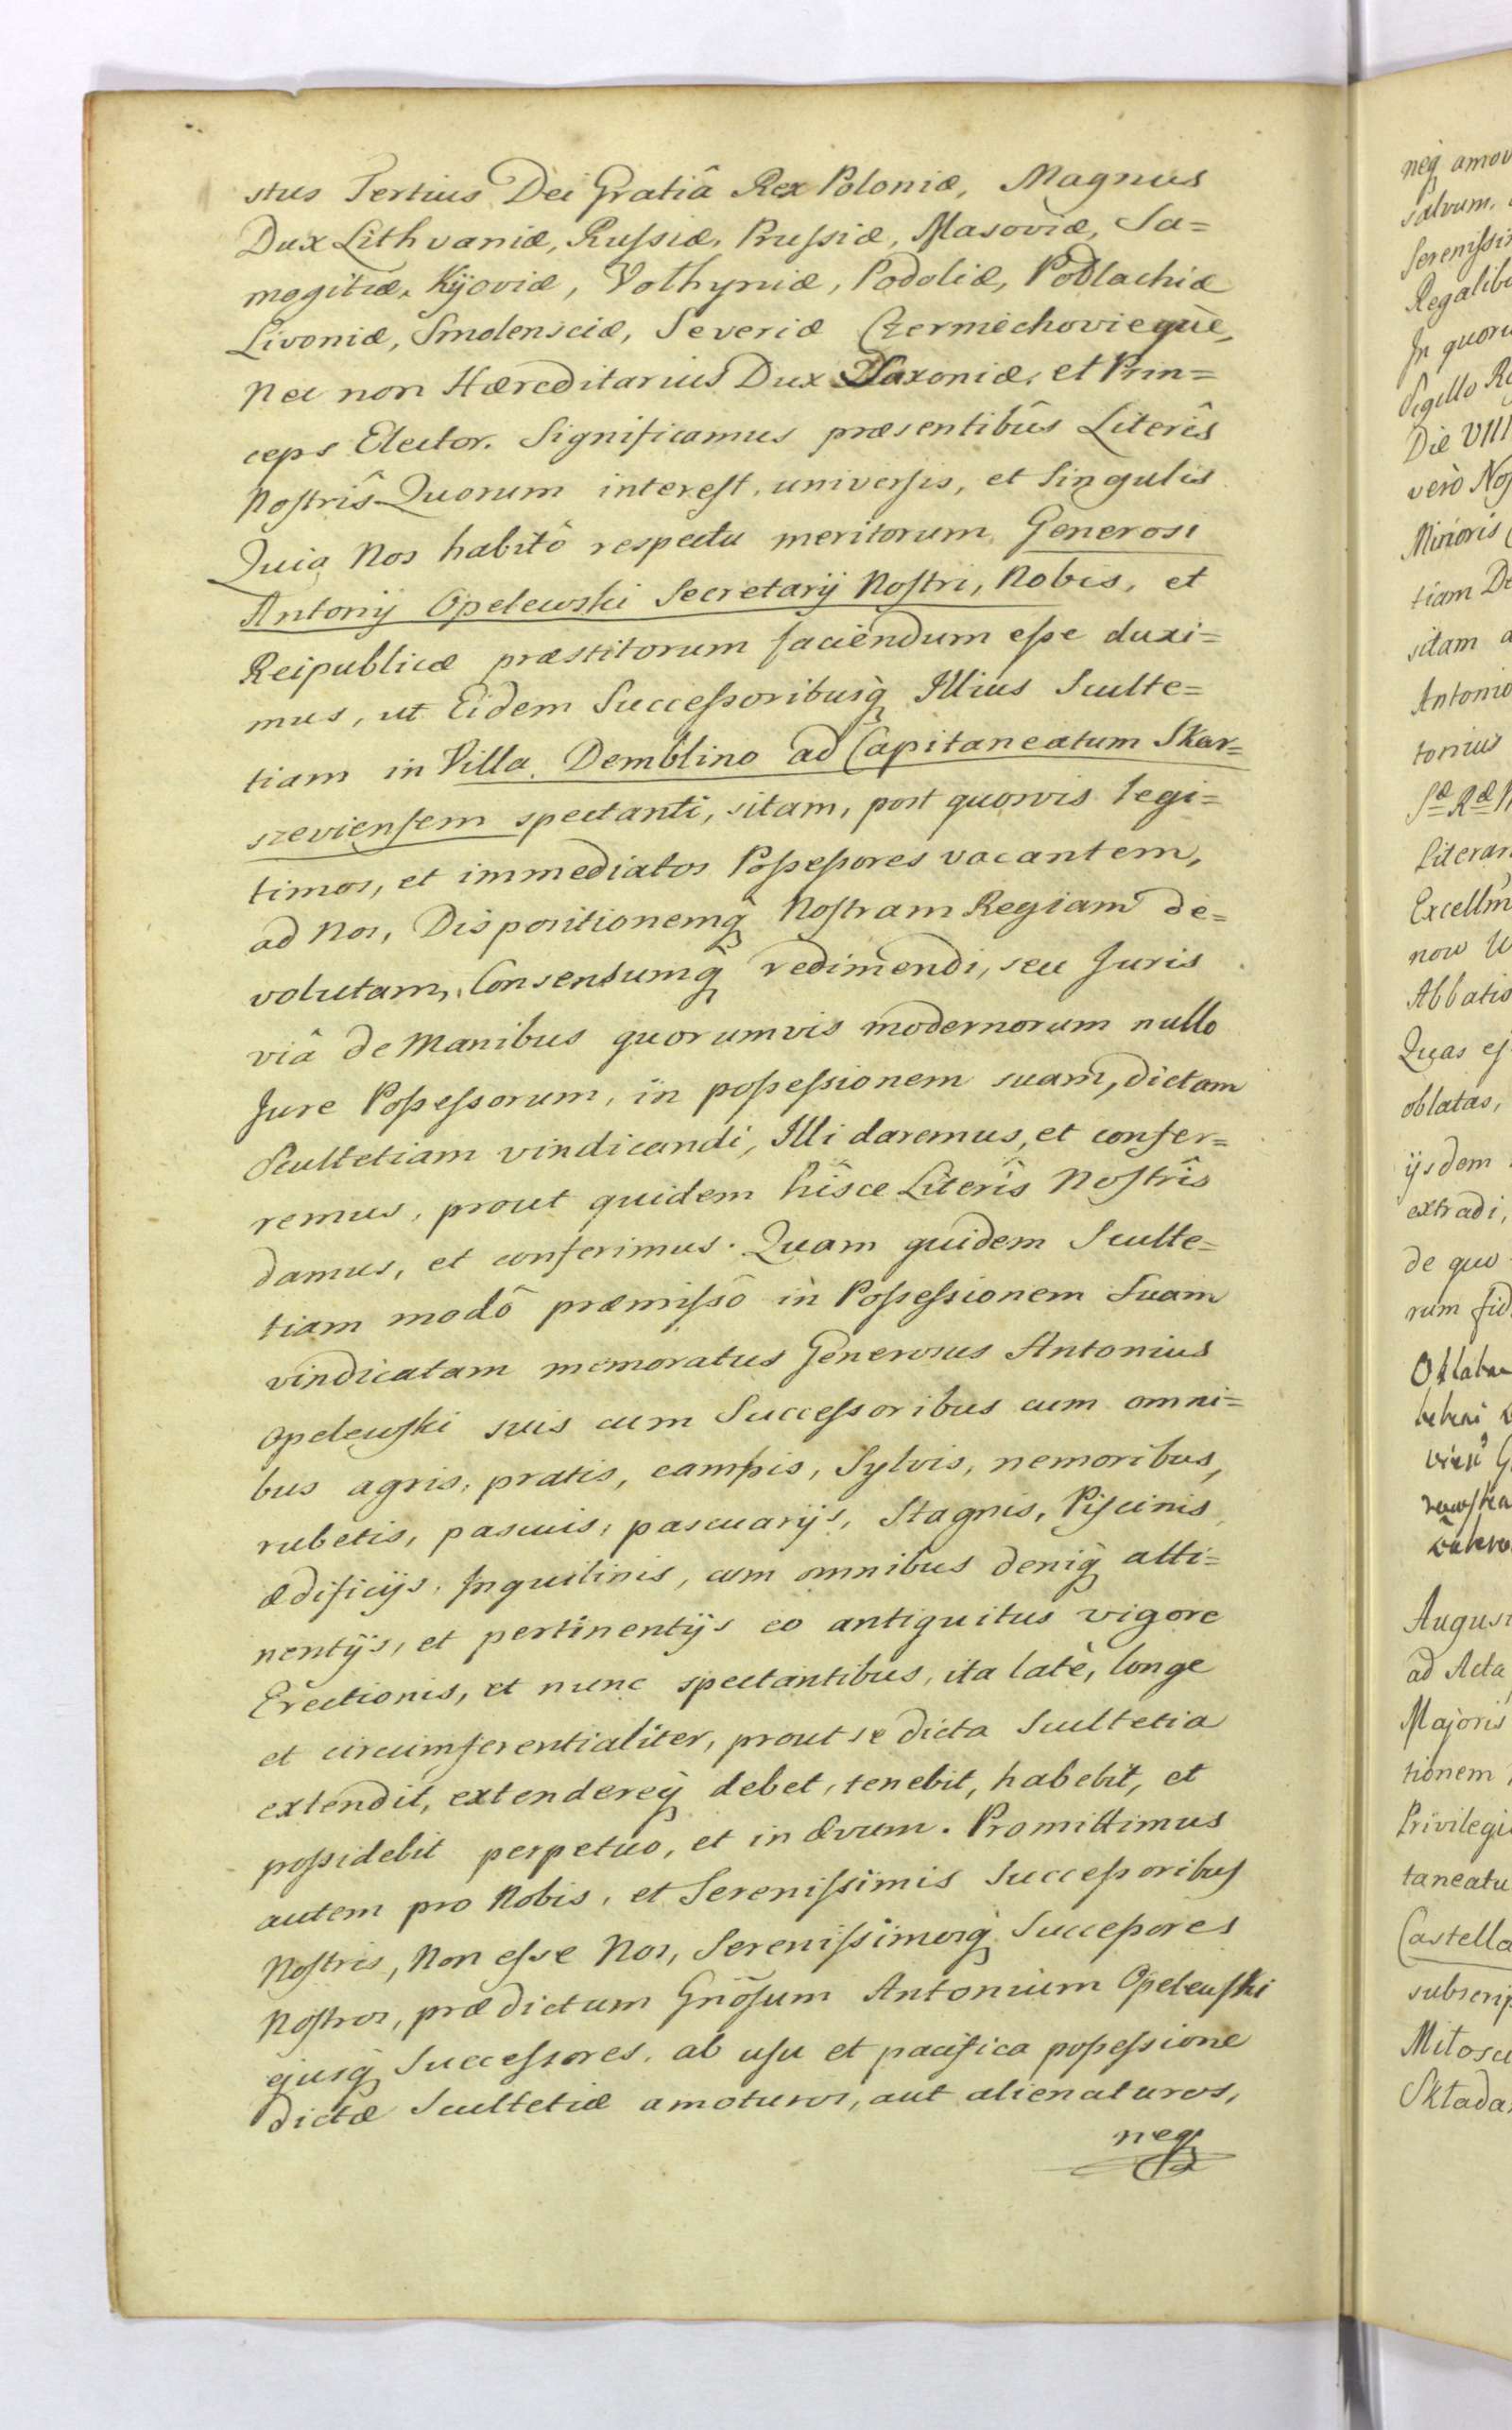 stus Tertius Dei Gratiâ Rex Poloniæ, Magnus
Dux Lithvaniæ, Russiæ, Prussiæ, Masoviæ, Sa=
mogitiæ, Kijoviæ, Volhyniæ, Podoliæ, Podlachiæ
Livoniæ, Smolensciæ, Severiæ Czerniechovieque,
nec non Hæreditarius Dux Saxoniæ, et Prin=
ceps Elector. Significamus præsentibûs Literîs
Nostrîs Quorum interest, universis, et singulis
Quia Nos habitô respectu meritorum Generosi
Antonij Opelewski Secretarij Nostri, Nobis, et
Reipublicæ præstitorum faciendum esse duxi=
mus, ut Eidem Successoribusq Illius Sculte=
tiam in Villa Demblino ad Capitaneatum Skar=
szeviensem spectanti, sitam, post quosvis legi=
timos, et immediatos Possessores vacantem,
ad Nos, Dispositionemq Nostram Regiam de=
volutam, Consensumq redimendi, seu Juris
viâ de Manibus quorumvis modernorum nullo
Jure Possessorum, in possessionem suam, dictam
Scultetiam vindicandi, Illi daremus, et confer=
remus, prout quidem hisce Literîs Nostrîs
damus, et conferimus. Quam quidem Sculte=
tiam modô præmissô in Possessionem Suam
vindicatam memoratus Generosus Antonius
Opelewski suis cum Successoribus cum omni=
bus agris, pratis, campis, Sylvis, nemoribus,
rubetis, pascuis, pascuarijs, Stagnis, Piscinis
ædificijs, Inquilinis, cum omnibus deniq atti=
nentijs, et pertinentijs eo antiquitus vigore
Erectionis, et nunc spectantibus, ita latè, longe
et circumferentialiter, prout se dicta Scultetia
extendit, extendereq debet, tenebit, habebit, et
possidebit perpetuo, et in ævum. Promittimus
autem pro Nobis, et Serenissimis Successoribus
Nostris, Non esse Nos, Serenissimosq Successores
Nostros, prædictum Gnõsum Antonium Opelewski
ejusq Successores, ab usu et pacifica possessione
dictæ Scultetiæ amoturos, aut alienaturos,
neq
neq amov
salvum,
Serenissi
Regalib
In quoru
Sigillo Re
Die VIII
verò Nos
Minoris
tiam De
sitam a
Antonio
tonius
Literar
Excellm
now
Abbatis
Quas es
oblatas,
ijsdem
extradi,
de quo
rum fid
August
ad Acta
Majoris
tionem
Privilegi
taneatu
Castella
subscrip
Mitosu
Składa